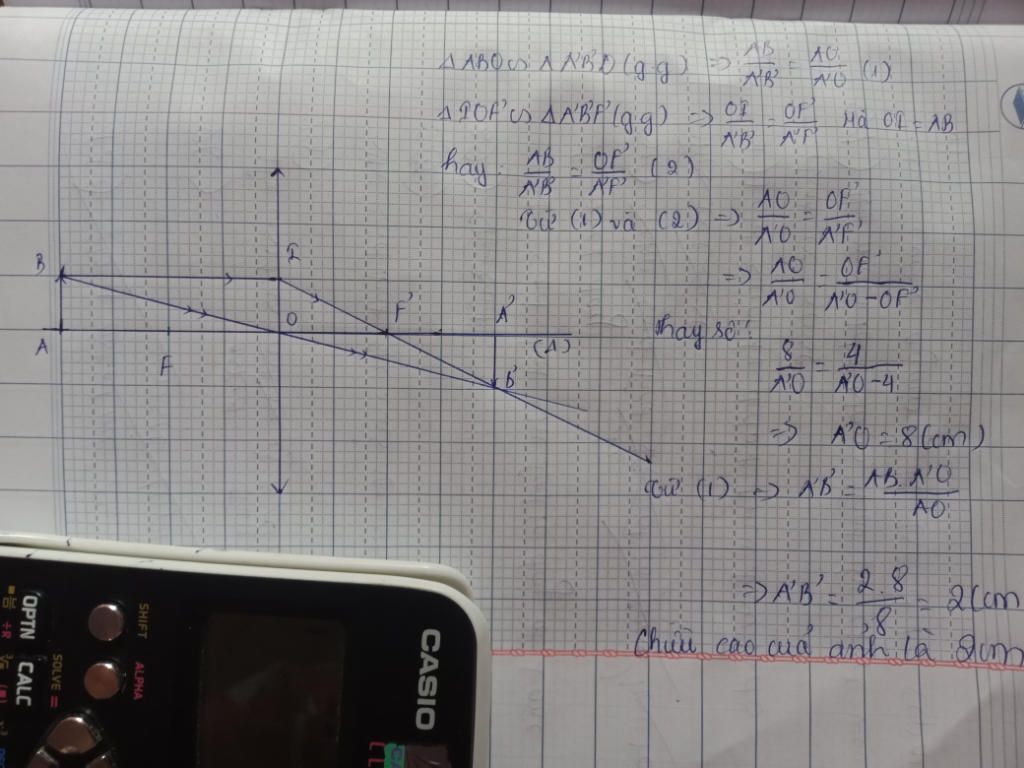 ΔABO ∽ ΔA'B'O (g.g) => AB/A'B' = AO/A'O (1)
ΔIOF' ∽ ΔA'B'F' (g.g) => OI/A'B' = OF'/A'F' Mà OI = AB
hay: AB/A'B' = OF'/A'F' (2)
Từ (1) và (2) => AO/A'O = OF'/A'F'
=> AO/A'O = OF'/A'O-OF'
Thay số:
8/A'O = 4/A'O-4
=> A'O = 8(cm)
Từ (1) => A'B' = AB.A'O/AO
=> A'B' = 2.8/8 = 2(cm
Chiều cao của ảnh là 2cm
B
I
F'
A'
O
A
F
(Δ)
B'
CASIO
SHIFT
ALPHA
OPTN
SOLVE =
CALC